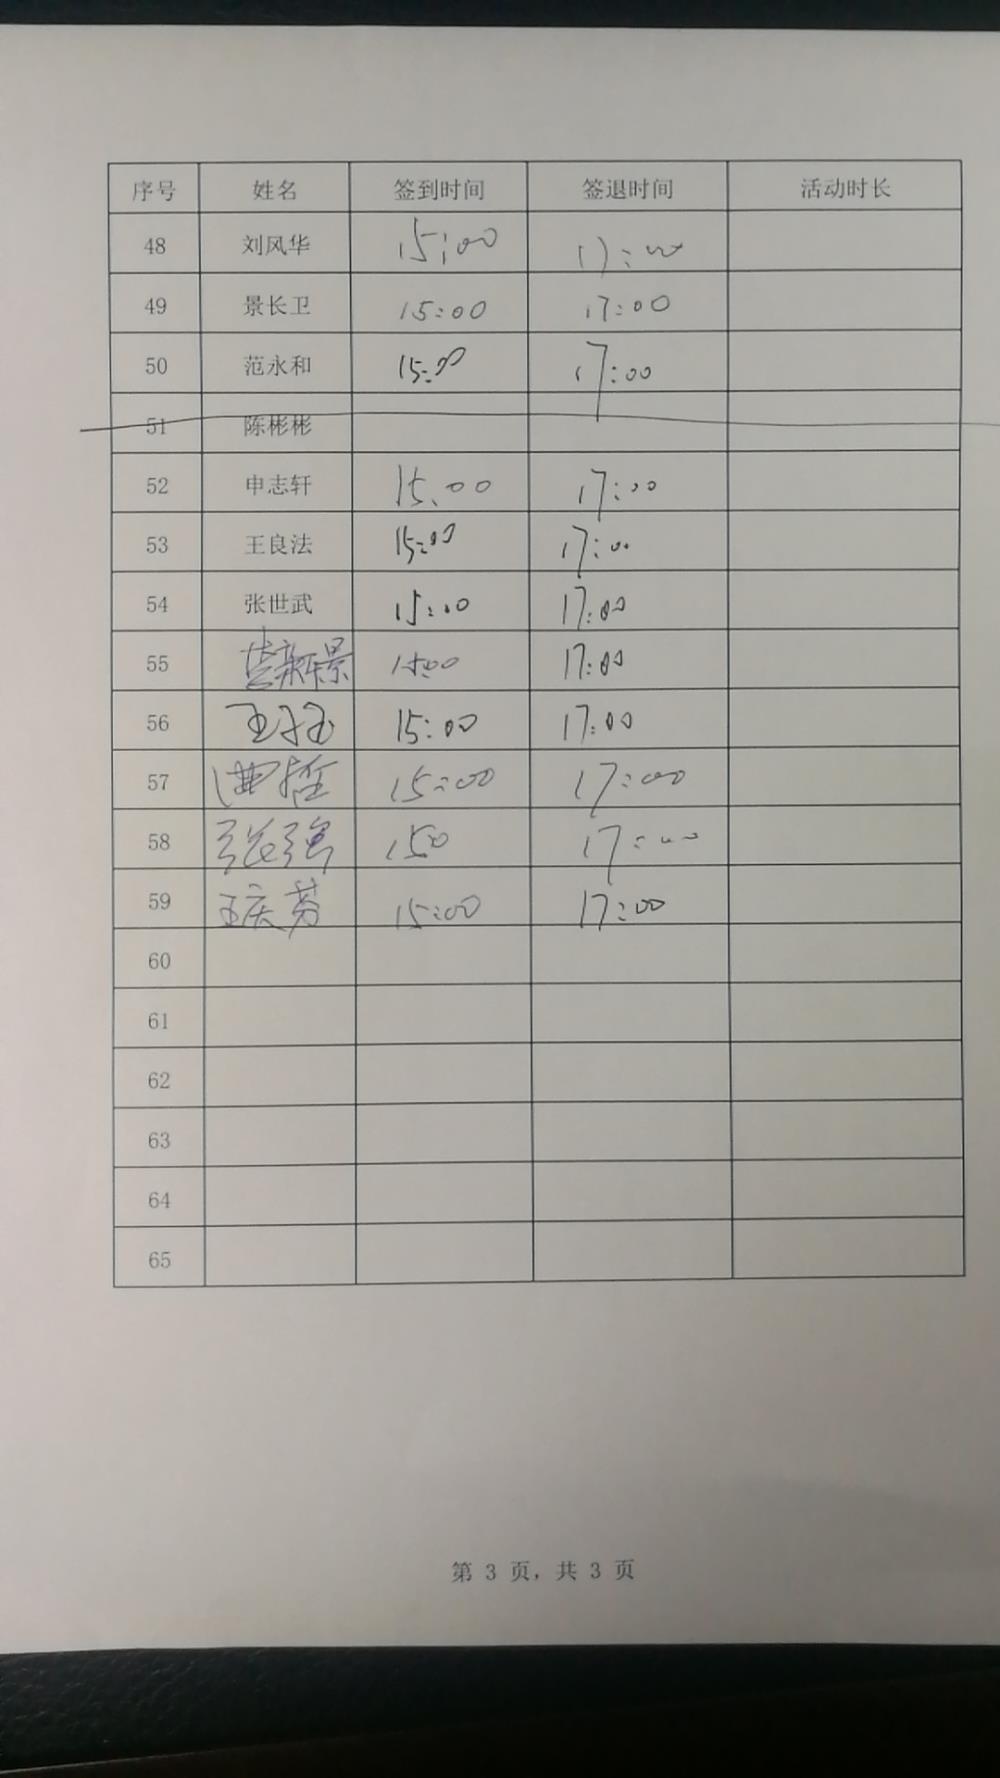 序号 姓名 签到时间 签退时间 活动时长
48 刘风华 15:00 17:00
49 景长卫 15:00 17:00
50 范永和 15:00 17:00
51 陈彬彬
52 申志轩 15:00 17:00
53 王良法 15:00 17:00
54 张世武 15:00 17:00
55 15:00 17:00
56 15:00 17:00
57 曲哲 15:00 17:00
58 张强 150 17:00
59 王庆芳 15:00 17:00
60
61
62
63
64
65
第 3 页，共 3 页